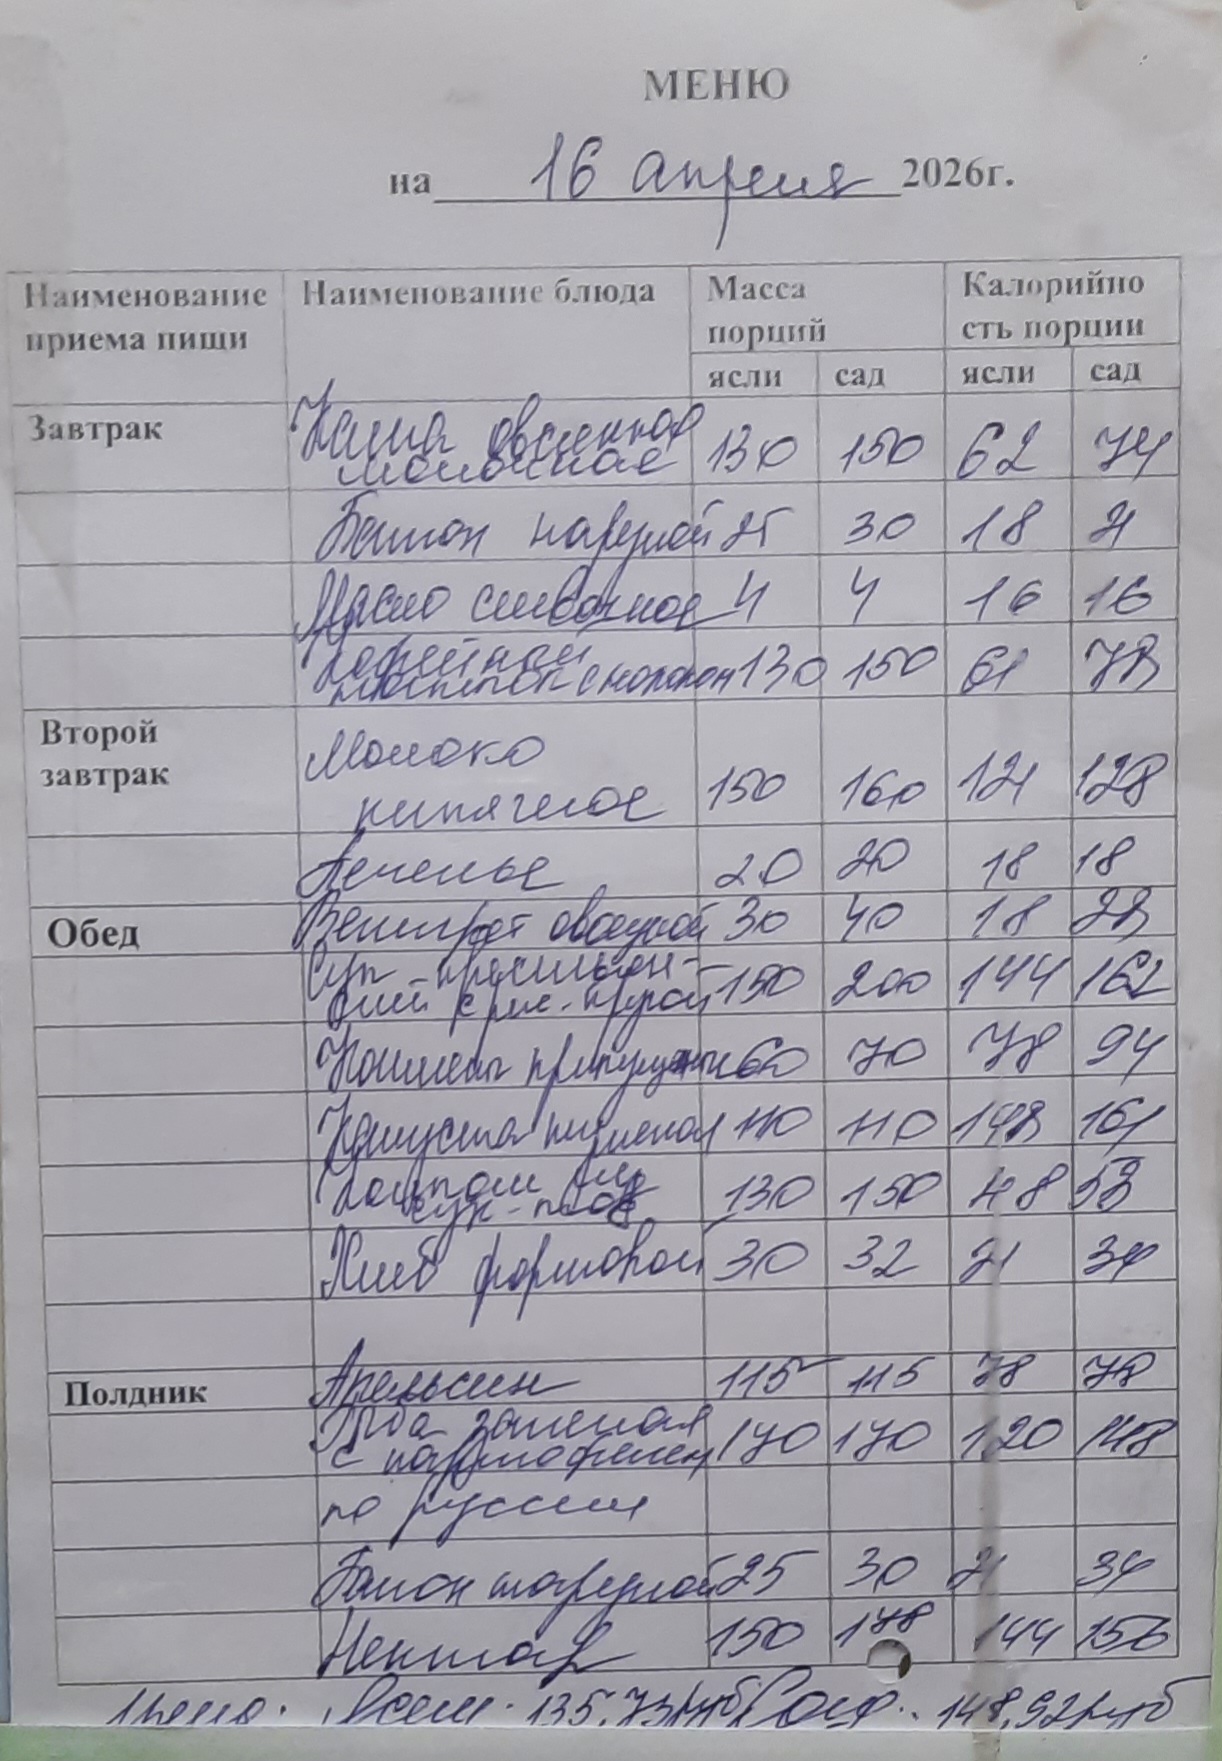 МЕНЮ
на 16 апреля 2026г.
Наименование приема пищи Наименование блюда Масса порций Калорийно сть порции
ясли сад ясли сад
Завтрак Каша овсенная молочная 130 150 62 74
Батон нарезной 25 30 18 21
Масло сливочное 4 4 16 16
Кофейный напиток с молоком 130 150 61 78
Второй завтрак Молоко кипяченое 150 160 121 128
Печенье 20 20 18 18
Обед Винегрет овощной 30 40 18 28
Суп крестьян-ский с крупой 150 200 144 162
Котлеты припущеные 60 70 78 94
Капуста тушеная 110 110 148 161
Компот из сух-плов 130 150 48 58
Хлеб формовой 30 32 21 34
Полдник Апельсин 115 115 78 78
Рыба запеченая с картофелем 170 170 120 148
по русски
Батон нарезной 25 30 21 34
Нектар 150 178 144 156
Цена. Ясли. 135,73руб Сад. 148,92руб